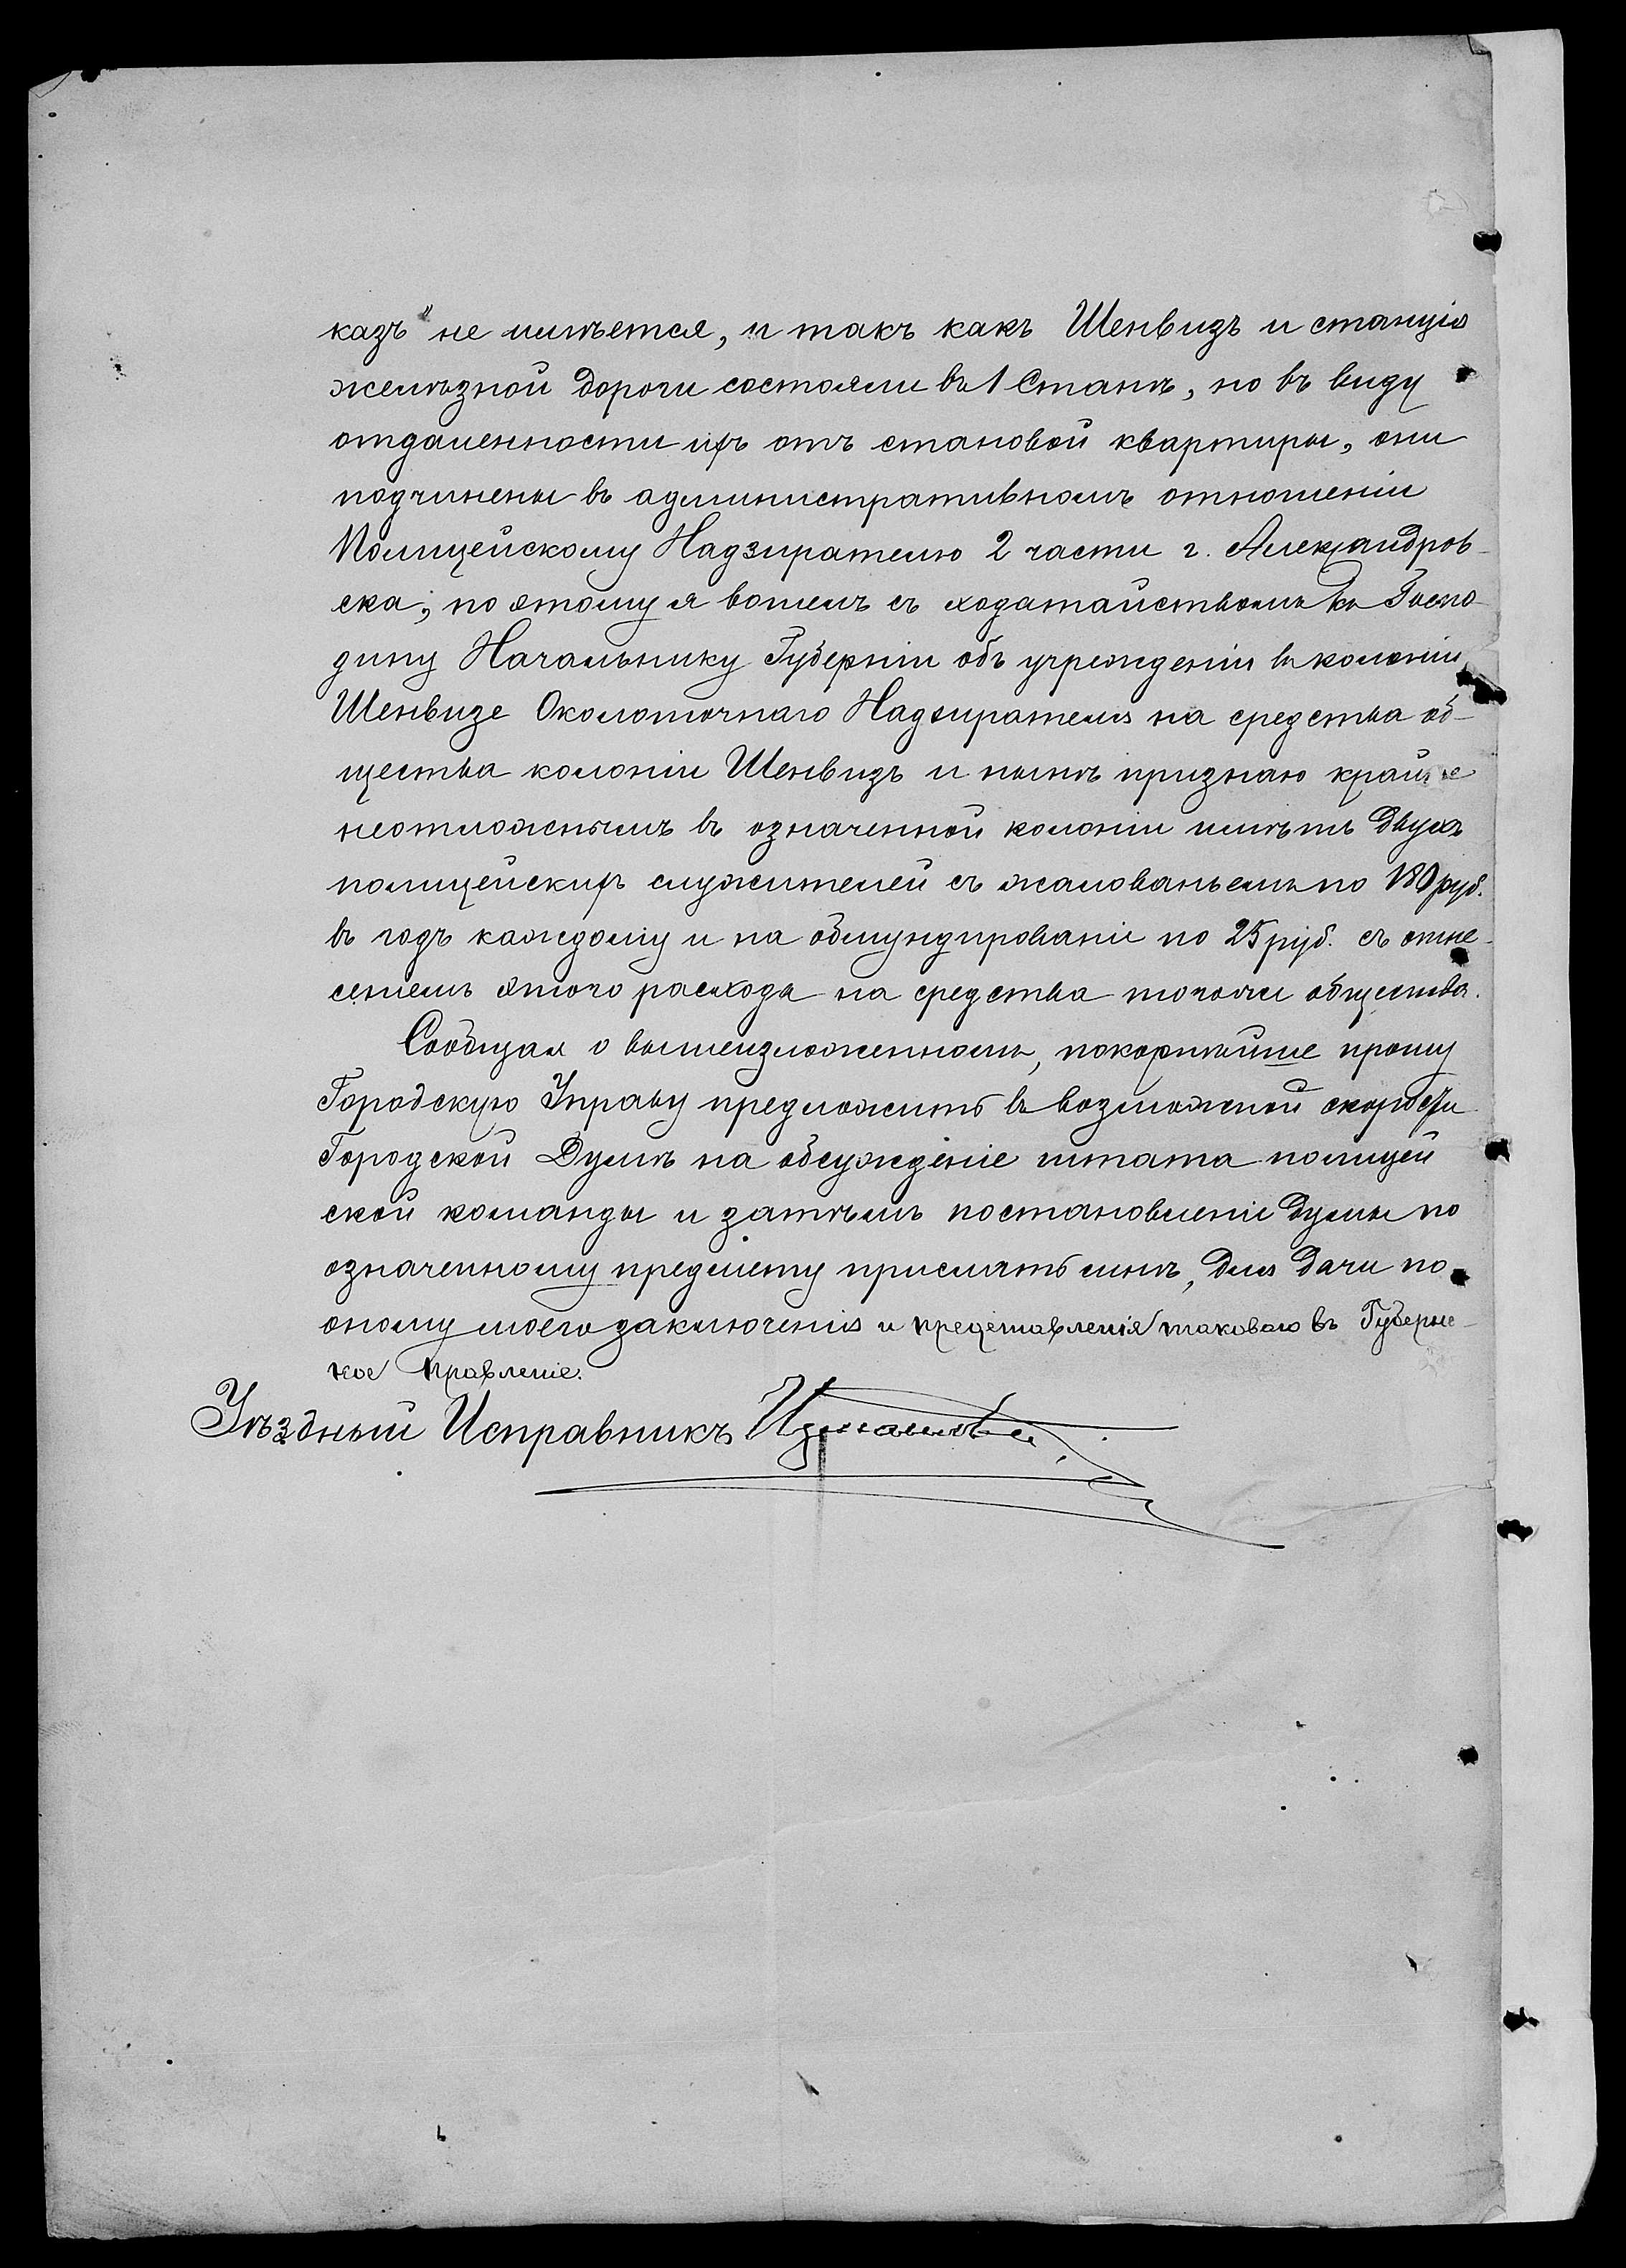 казъ" не имѣется, и такъ какъ Шенвизъ и станція
желѣзной дороги состояли въ 1 Станѣ, но въ виду
отдаленности ихъ отъ становой квартиры, они
подчинены въ административномъ отношеніи
Полицейскому Надзирателю 2 части г. Александров-
ска, по этому я вошелъ съ ходатайствомъ къ Госпо-
дину Начальнику Губерніи объ учрежденіи въ колоніи
Шенвизе Околоточнаго Надзирателя на средства об-
щества колоніи Шенвизъ и нынѣ признаю крайне
неотложнымъ въ означенной колоніи имѣть двухъ
полицейскихъ служителей съ жалованьемъ по 180 руб.
въ годъ каждому и на обмундированіе по 25 руб. съ отне-
сеніемъ этого расхода на средства того же общества.
Сообщая о вышеизложенномъ, покорнѣйше прошу
Городскую Управу предложить въ возможной скорости
Городской Думѣ на обсужденіе штата полицей
ской команды и затѣмъ постановленіе думы по
означенному предмету прислать мнѣ, для дачи по
оному моего заключенія и представленія таковаго въ Губернс-
кое Правленіе.
Уѣздный Исправникъ